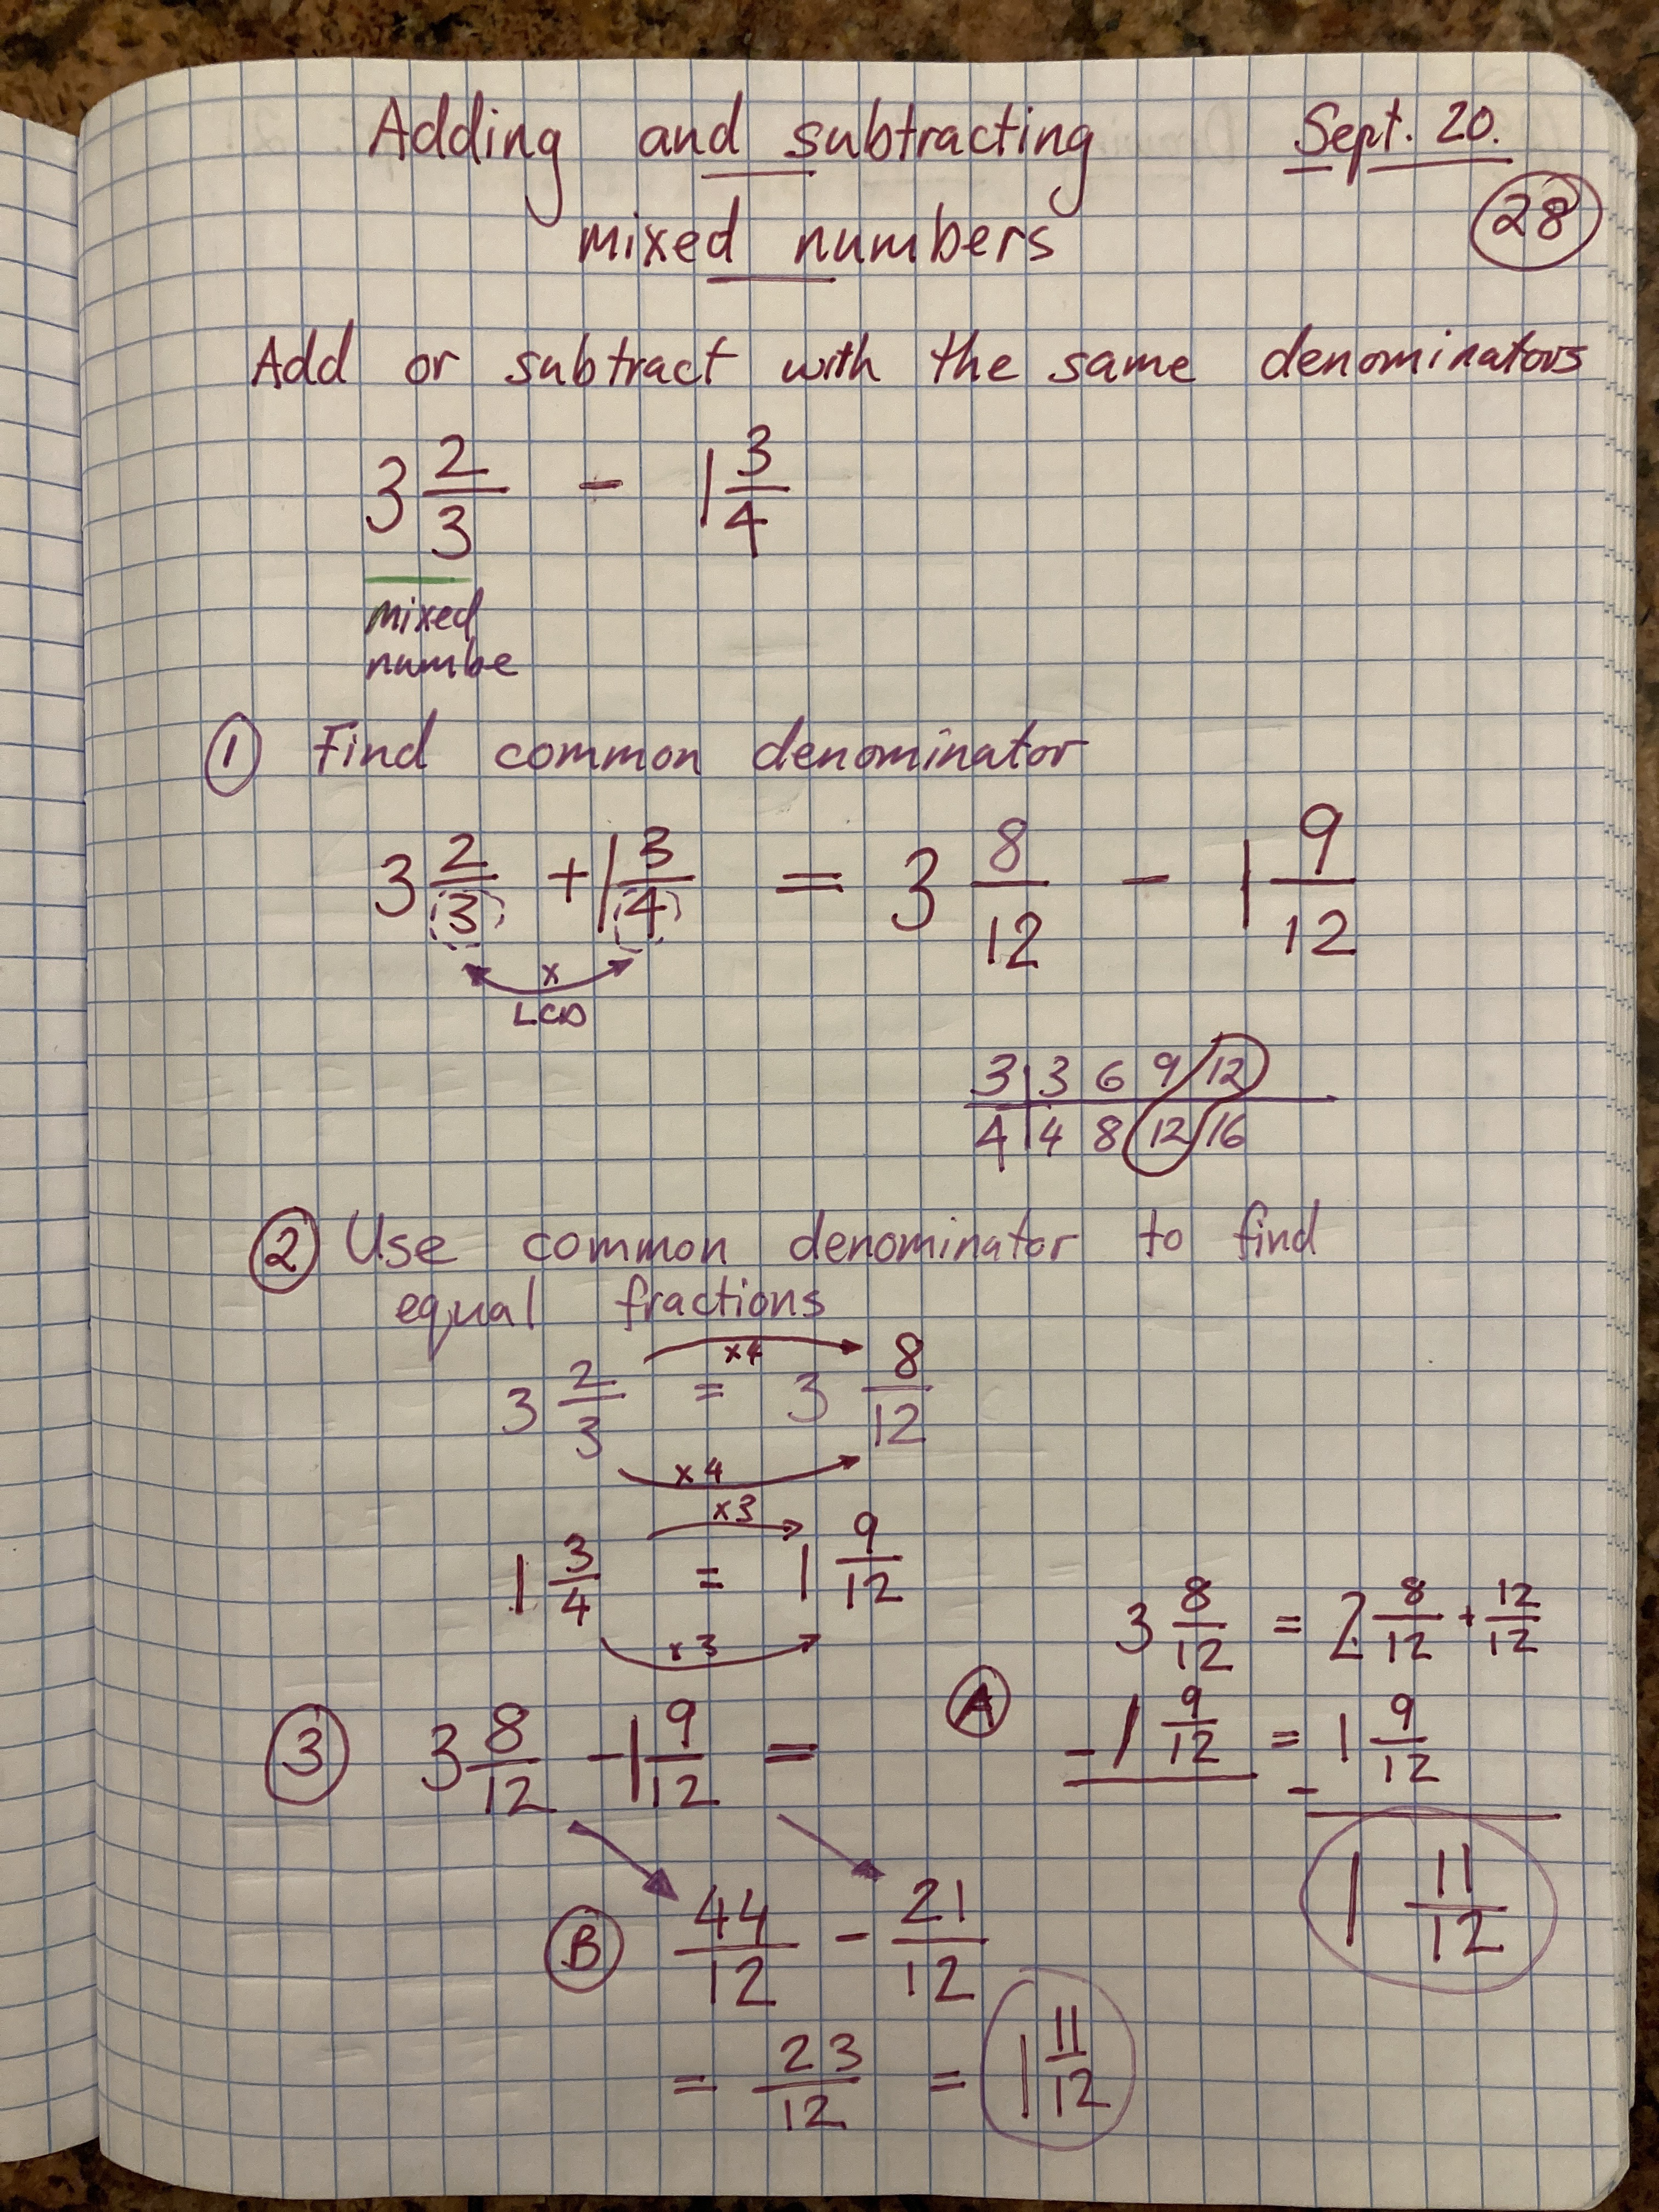 Adding and subtracting Sept. 20.
mixed numbers 28
Add or subtract with the same denominators
3 2/3 - 1 3/4
mixed
numbe
① Find common denominator
3 2/3 + 1 3/4 = 3 8/12 - 1 9/12
x
LCD
3 | 3 6 9 12
4 | 4 8 12 16
② Use common denominator to find
equal fractions
x4
3 2/3 = 3 8/12
x4
x3
1 3/4 = 1 9/12
x3
③ 3 8/12 - 1 9/12 =
Ⓐ 3 8/12 = 2 8/12 + 12/12
- 1 9/12 = - 1 9/12
1 11/12
Ⓑ 44/12 - 21/12
= 23/12 = 1 11/12